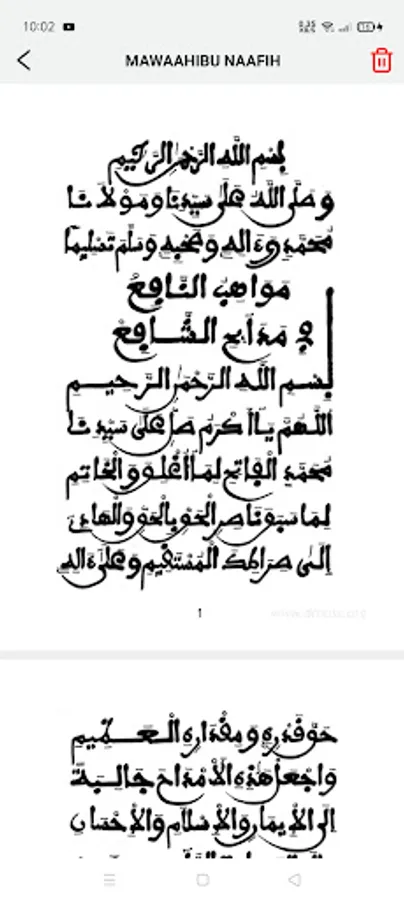 10:02
0.35
MAWAAHIBU NAAFIH
بسم الله الرحمن الرحيم
وصلى الله على سيدنا ومولانا
محمد وءاله وصحبه وسلم تسليما
مواهب النافع
في مدائح الشافع
بسم الله الرحمن الرحيم
اللهم يا أكرم صل على سيدنا
محمد الفاتح لما أغلق والخاتم
لما سبق ناصر الحق بالحق والهادي
إلى صراطك المستقيم وعلى ءاله
1
حق قدره ومقداره العظيم
واجعل هذه الأمداح جالبة
إلى الإيمان والإسلام والإحسان